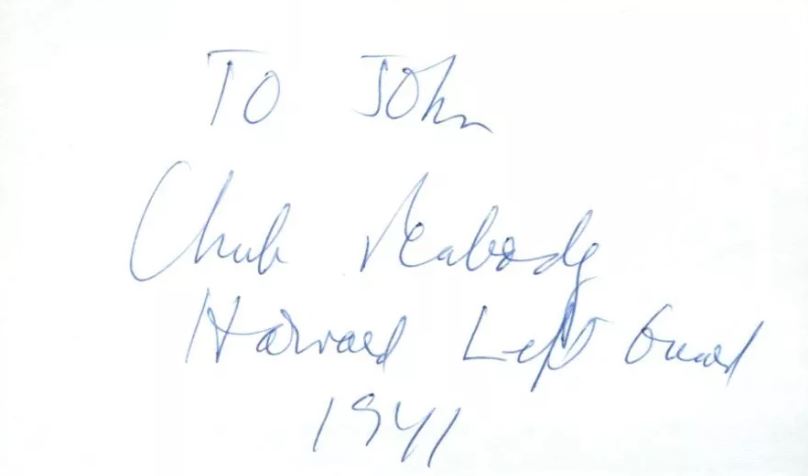 To John
Chub Peabody
Harvard Left Guard
1941